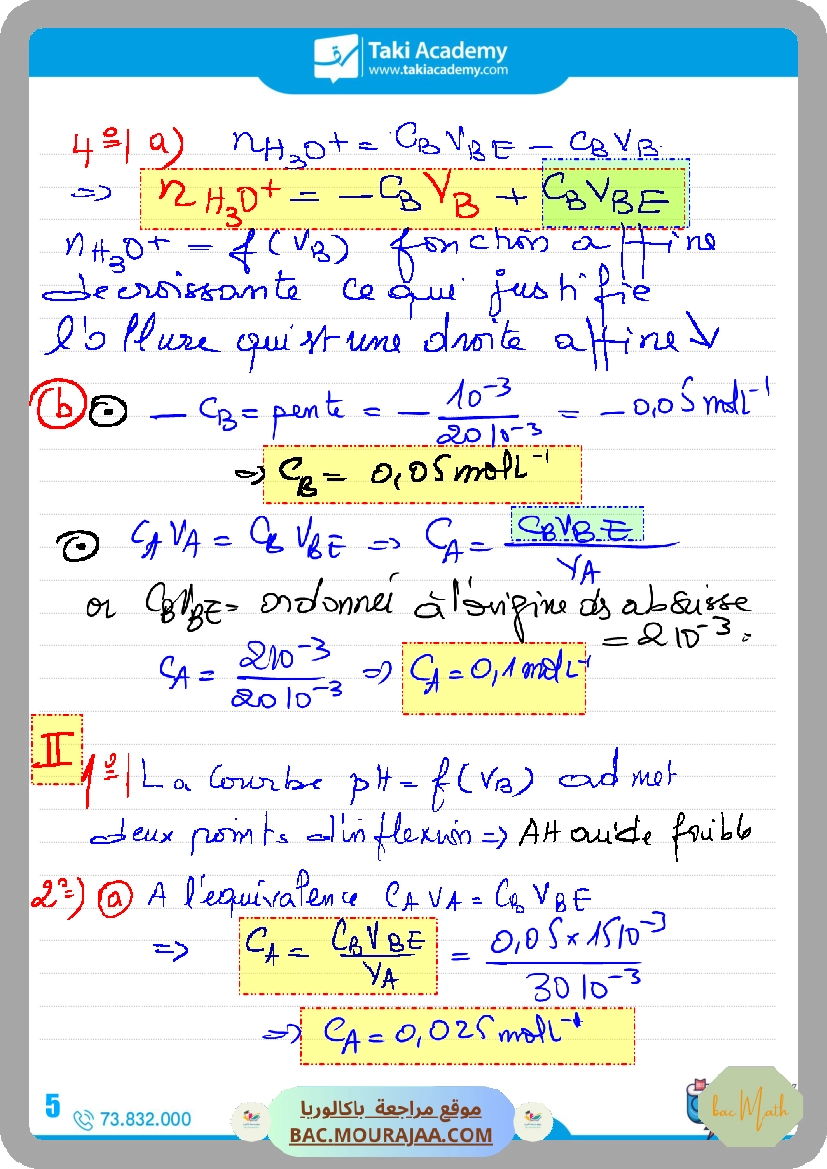 Taki Academy
www.takiacademy.com
4°/ a) nH₃O⁺ = CBVBE − CBVB
=> nH₃O⁺ = −CB VB + CBVBE
nH₃O⁺ = f(VB) fonction affine
decroissante ce qui justifie
l'allure qui st une droite affine ↘
b) ⊙ − CB = pente = − 10⁻³ / 20 10⁻³ = −0,05 molL⁻¹
=> CB = 0,05 molL⁻¹
⊙ CA VA = CB VBE => CA = CBVBE / VA
or CBVBE = ordonneé à l'origine des absisse
= 2 10⁻³.
CA = 2 10⁻³ / 20 10⁻³ => CA = 0,1 molL⁻¹
II
1°/ La Courbe pH = f(VB) admet
deux points d'inflexion => AH acide faible
2°) a A l'equivalence CA VA = CB VBE
=> CA = CBVBE / VA = 0,05 × 15 10⁻³ / 30 10⁻³
=> CA = 0,025 molL⁻¹
5 73.832.000
موقع مراجعة باكالوريا
BAC.MOURAJAA.COM
bac Math